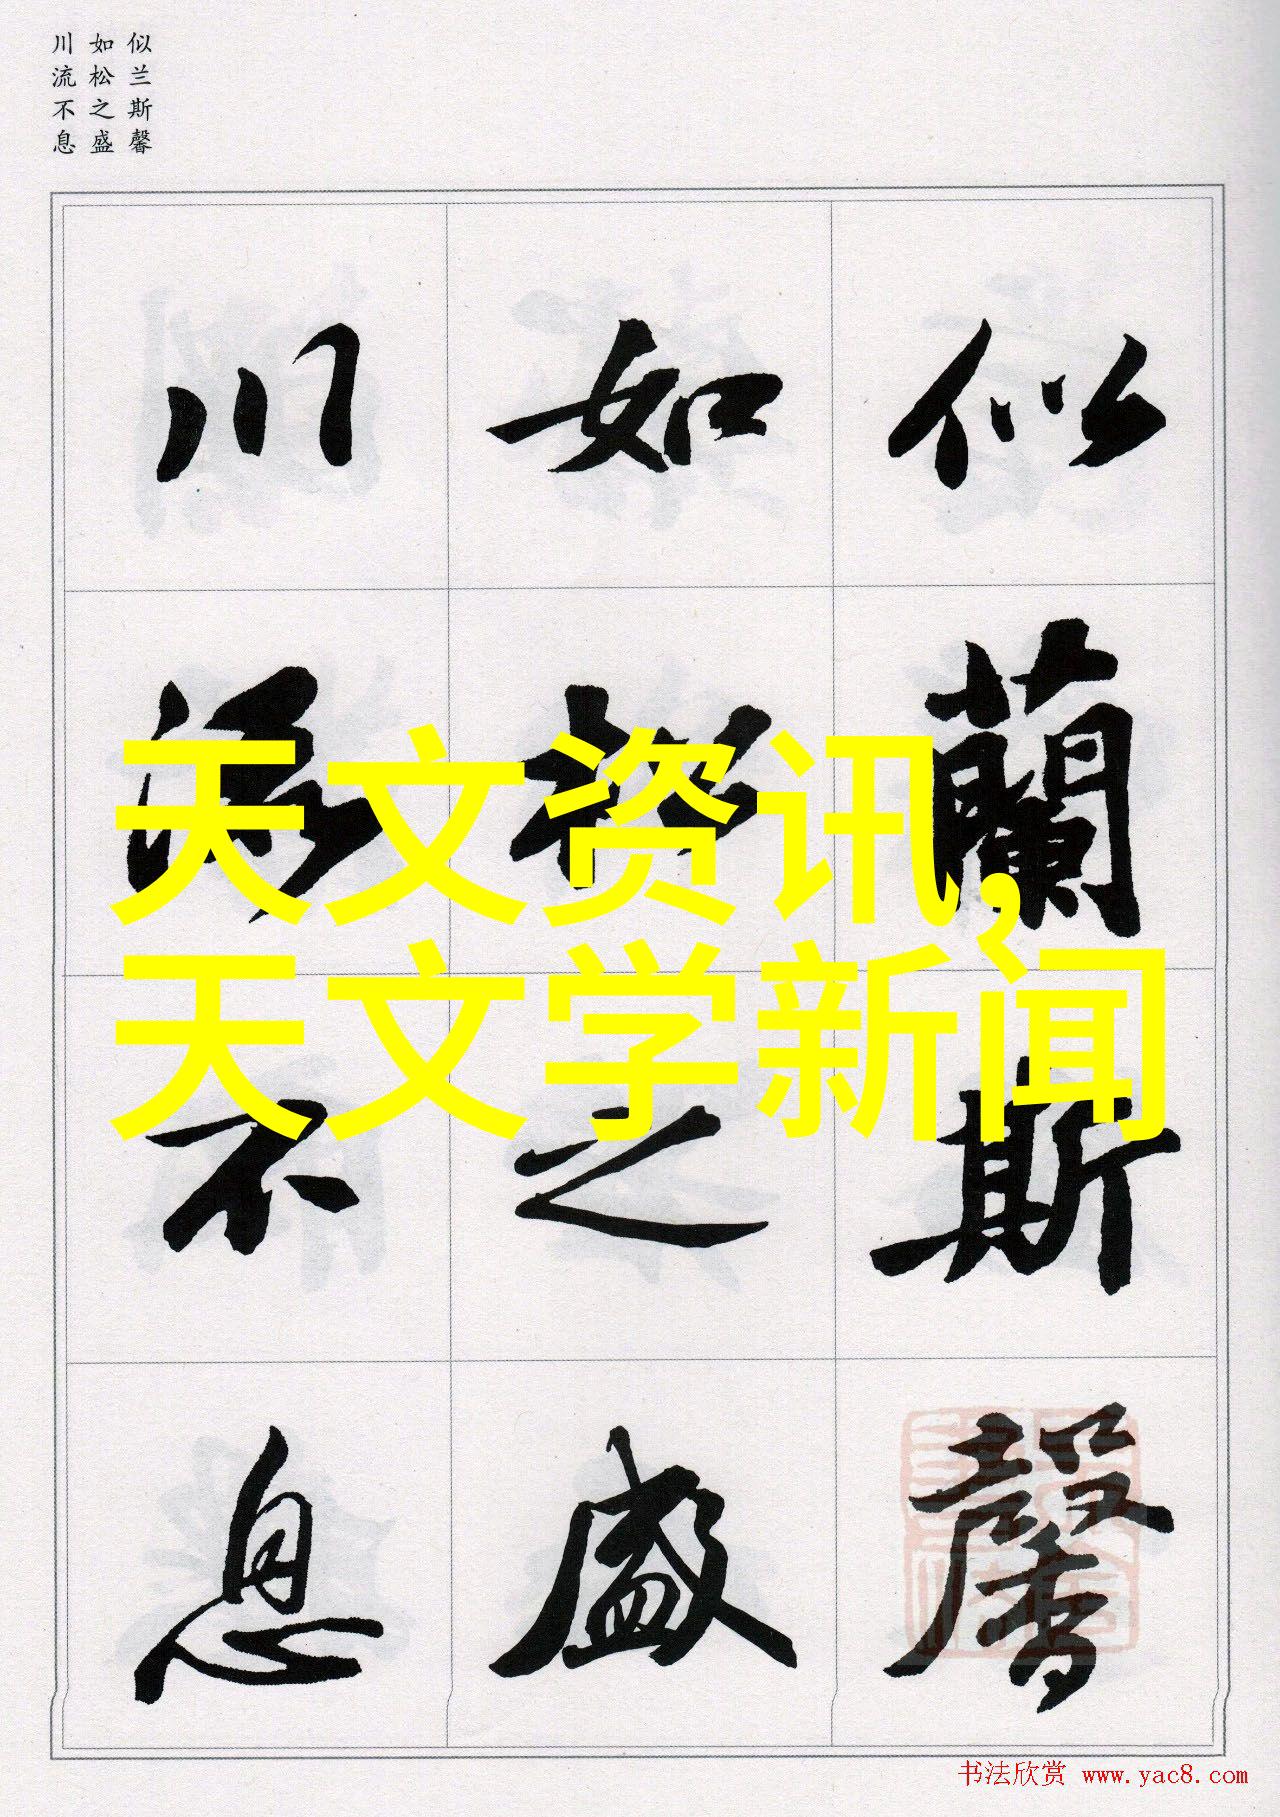 似兰斯馨
如松之盛
川流不息
似蘭斯馨
如松之盛
川流不息
天文资讯,
天文学新闻
书法欣赏 www.yac8.com